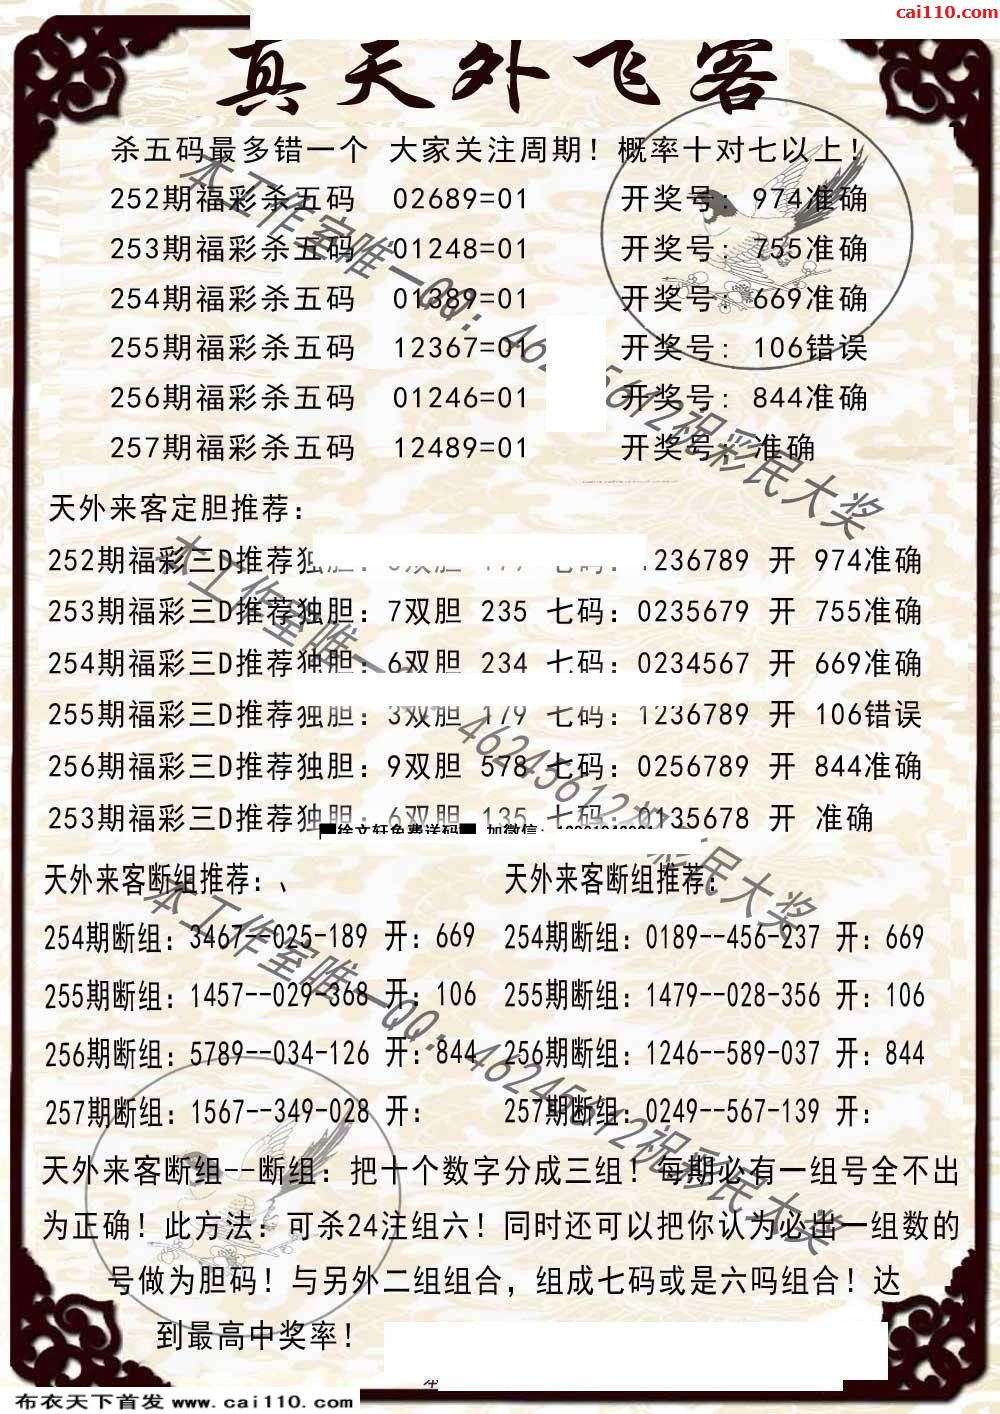 cai110.com
真天外飞客
杀五码最多错一个 大家关注周期！概率十对七以上！
252期福彩杀五码 02689=01 开奖号：974准确
253期福彩杀五码 01248=01 开奖号：755准确
254期福彩杀五码 01389=01 开奖号：669准确
255期福彩杀五码 12367=01 开奖号：106错误
256期福彩杀五码 01246=01 开奖号：844准确
257期福彩杀五码 12489=01 开奖号：准确
天外来客定胆推荐：
252期福彩三D推荐独胆： 双胆 179 七码：1236789 开 974准确
253期福彩三D推荐独胆：7双胆 235 七码：0235679 开 755准确
254期福彩三D推荐独胆：6双胆 234 七码：0234567 开 669准确
255期福彩三D推荐独胆：3双胆 179 七码：1236789 开 106错误
256期福彩三D推荐独胆：9双胆 578 七码：0256789 开 844准确
253期福彩三D推荐独胆：6双胆 135 七码：0135678 开 准确
徐文轩免费送码 加微信：
天外来客断组推荐：、 天外来客断组推荐：
254期断组：3467--025-189 开：669 254期断组：0189--456-237 开：669
255期断组：1457--029-368 开：106 255期断组：1479--028-356 开：106
256期断组：5789--034-126 开：844 256期断组：1246--589-037 开：844
257期断组：1567--349-028 开： 257期断组：0249--567-139 开：
天外来客断组--断组：把十个数字分成三组！每期必有一组号全不出
为正确！此方法：可杀24注组六！同时还可以把你认为必出一组数的
号做为胆码！与另外二组组合，组成七码或是六吗组合！达
到最高中奖率！
本工作室唯一QQ：46245612祝彩民大奖
本工作室唯一 46245612祝彩民大奖
本工作室唯一QQ：46245612祝彩民大奖
布衣天下首发 www.cai110.com